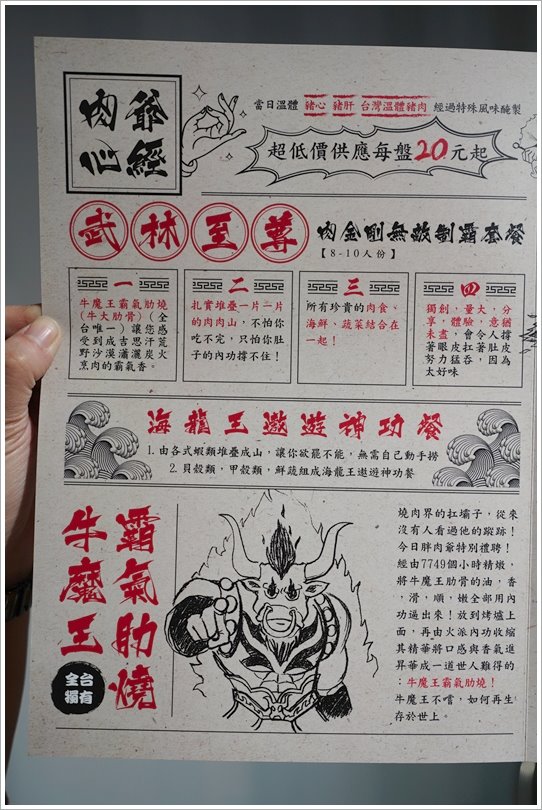 肉爺
心經
當日溫體 豬心 豬肝 台灣溫體豬肉 經過特殊風味醃製
超低價供應每盤20元起
武林至尊 肉金剛無敵制霸套餐
【8-10人份】
一
牛魔王霸氣肋燒
(牛大肋骨)(全
台唯一)讓您感
受到成吉思汗荒
野沙漠瀟灑炭火
烹肉的霸氣香。
二
扎實堆疊一片一片
的肉肉山,不怕你
吃不完,只怕你肚
子的內功撐不住!
三
所有珍貴的肉食、
海鮮、蔬菜結合在
一起!
四
獨創,量大,分
享,體驗,意猶
未盡,會令人撐
著眼皮扛著肚皮
努力猛吞,因為
太好味
海龍王遨遊神功餐
1.由各式蝦類堆疊成山,讓你欲罷不能,無需自己動手撈
2.貝殼類,甲殼類,鮮蔬組成海龍王遨遊神功餐
霸氣肋燒
牛魔王
全台
獨有
燒肉界的扛壩子,從來
沒有人看過他的蹤跡!
今日胖肉爺特別禮聘!
經由7749個小時精燉,
將牛魔王肋骨的油,香
,滑,順,嫩全部用內
功逼出來!放到烤爐上
面,再由火派內功收縮
其精華將口感與香氣進
昇華成一道世人難得的
:牛魔王霸氣肋燒!
牛魔王不嚐,如何再生
存於世上。